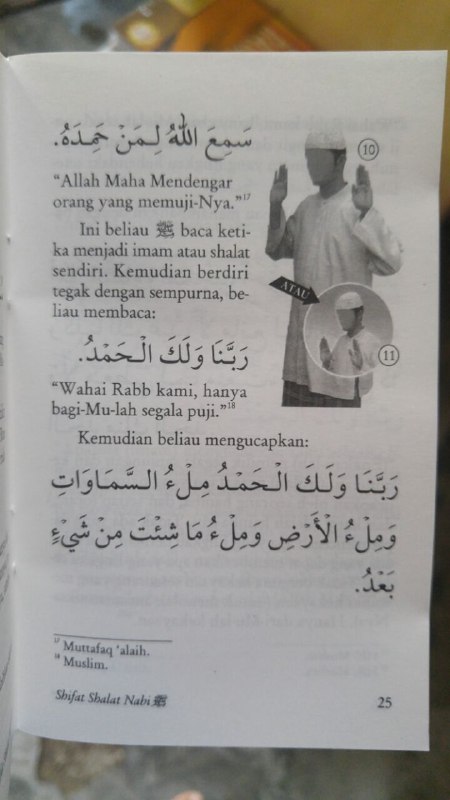 سَمِعَ اللهُ لِـمَنْ حَمِدَهُ.
“Allah Maha Mendengar
orang yang memuji-Nya.”¹⁷
Ini beliau ﷺ baca keti-
ka menjadi imam atau shalat
sendiri. Kemudian berdiri
tegak dengan sempurna, be-
liau membaca:
رَبَّنَا وَلَكَ الْـحَمْدُ.
“Wahai Rabb kami, hanya
bagi-Mu-lah segala puji.”¹⁸
10
ATAU
11
Kemudian beliau mengucapkan:
رَبَّنَا وَلَكَ الْـحَمْدُ مِلْءُ السَّمَاوَاتِ
وَمِلْءُ الْأَرْضِ وَمِلْءُ مَا شِئْتَ مِنْ شَيْءٍ
بَعْدُ.
¹⁷ Muttafaq ‘alaih.
¹⁸ Muslim.
Shifat Shalat Nabi ﷺ 25